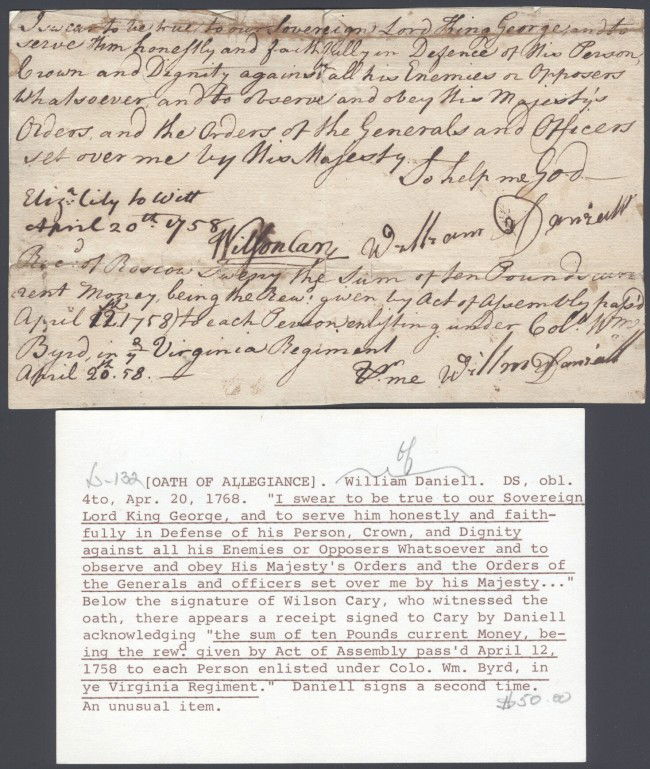 I swear to be true to our Sovereign Lord King George, and to
serve Him honestly and faithfully in Defence of His Person,
Crown and Dignity against all his Enemies or Opposers
Whatsoever, and to observe and obey His Majesty's
Orders, and the Orders of the Generals and Officers
set over me by His Majesty.
So help me God
Eliz.a City to Witt
April 20th 1758
Wilson Cary William Daniell
Rec.d of Roscow the Sum of ten Pounds cur
rent Money, being the Rew.d given by Act of Assembly pass'd
April 12 1758) to each Person enlisting under Col.o Wm
Byrd, in ye Virginia Regiment
April 20th. 58. — me Willm Daniell
D-132 [OATH OF ALLEGIANCE]. of William Daniell. DS, obl.
4to, Apr. 20, 1768. "I swear to be true to our Sovereign
Lord King George, and to serve him honestly and faith-
fully in Defense of his Person, Crown, and Dignity
against all his Enemies or Opposers Whatsoever and to
observe and obey His Majesty's Orders and the Orders of
the Generals and officers set over me by his Majesty..."
Below the signature of Wilson Cary, who witnessed the
oath, there appears a receipt signed to Cary by Daniell
acknowledging "the sum of ten Pounds current Money, be-
ing the rewd. given by Act of Assembly pass'd April 12,
1758 to each Person enlisted under Colo. Wm. Byrd, in
ye Virginia Regiment." Daniell signs a second time.
An unusual item. $50.00